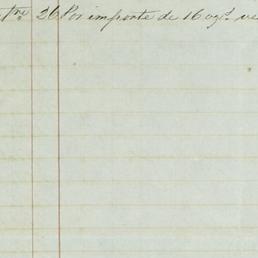 bre 26 Por importe de 16 ozs ve